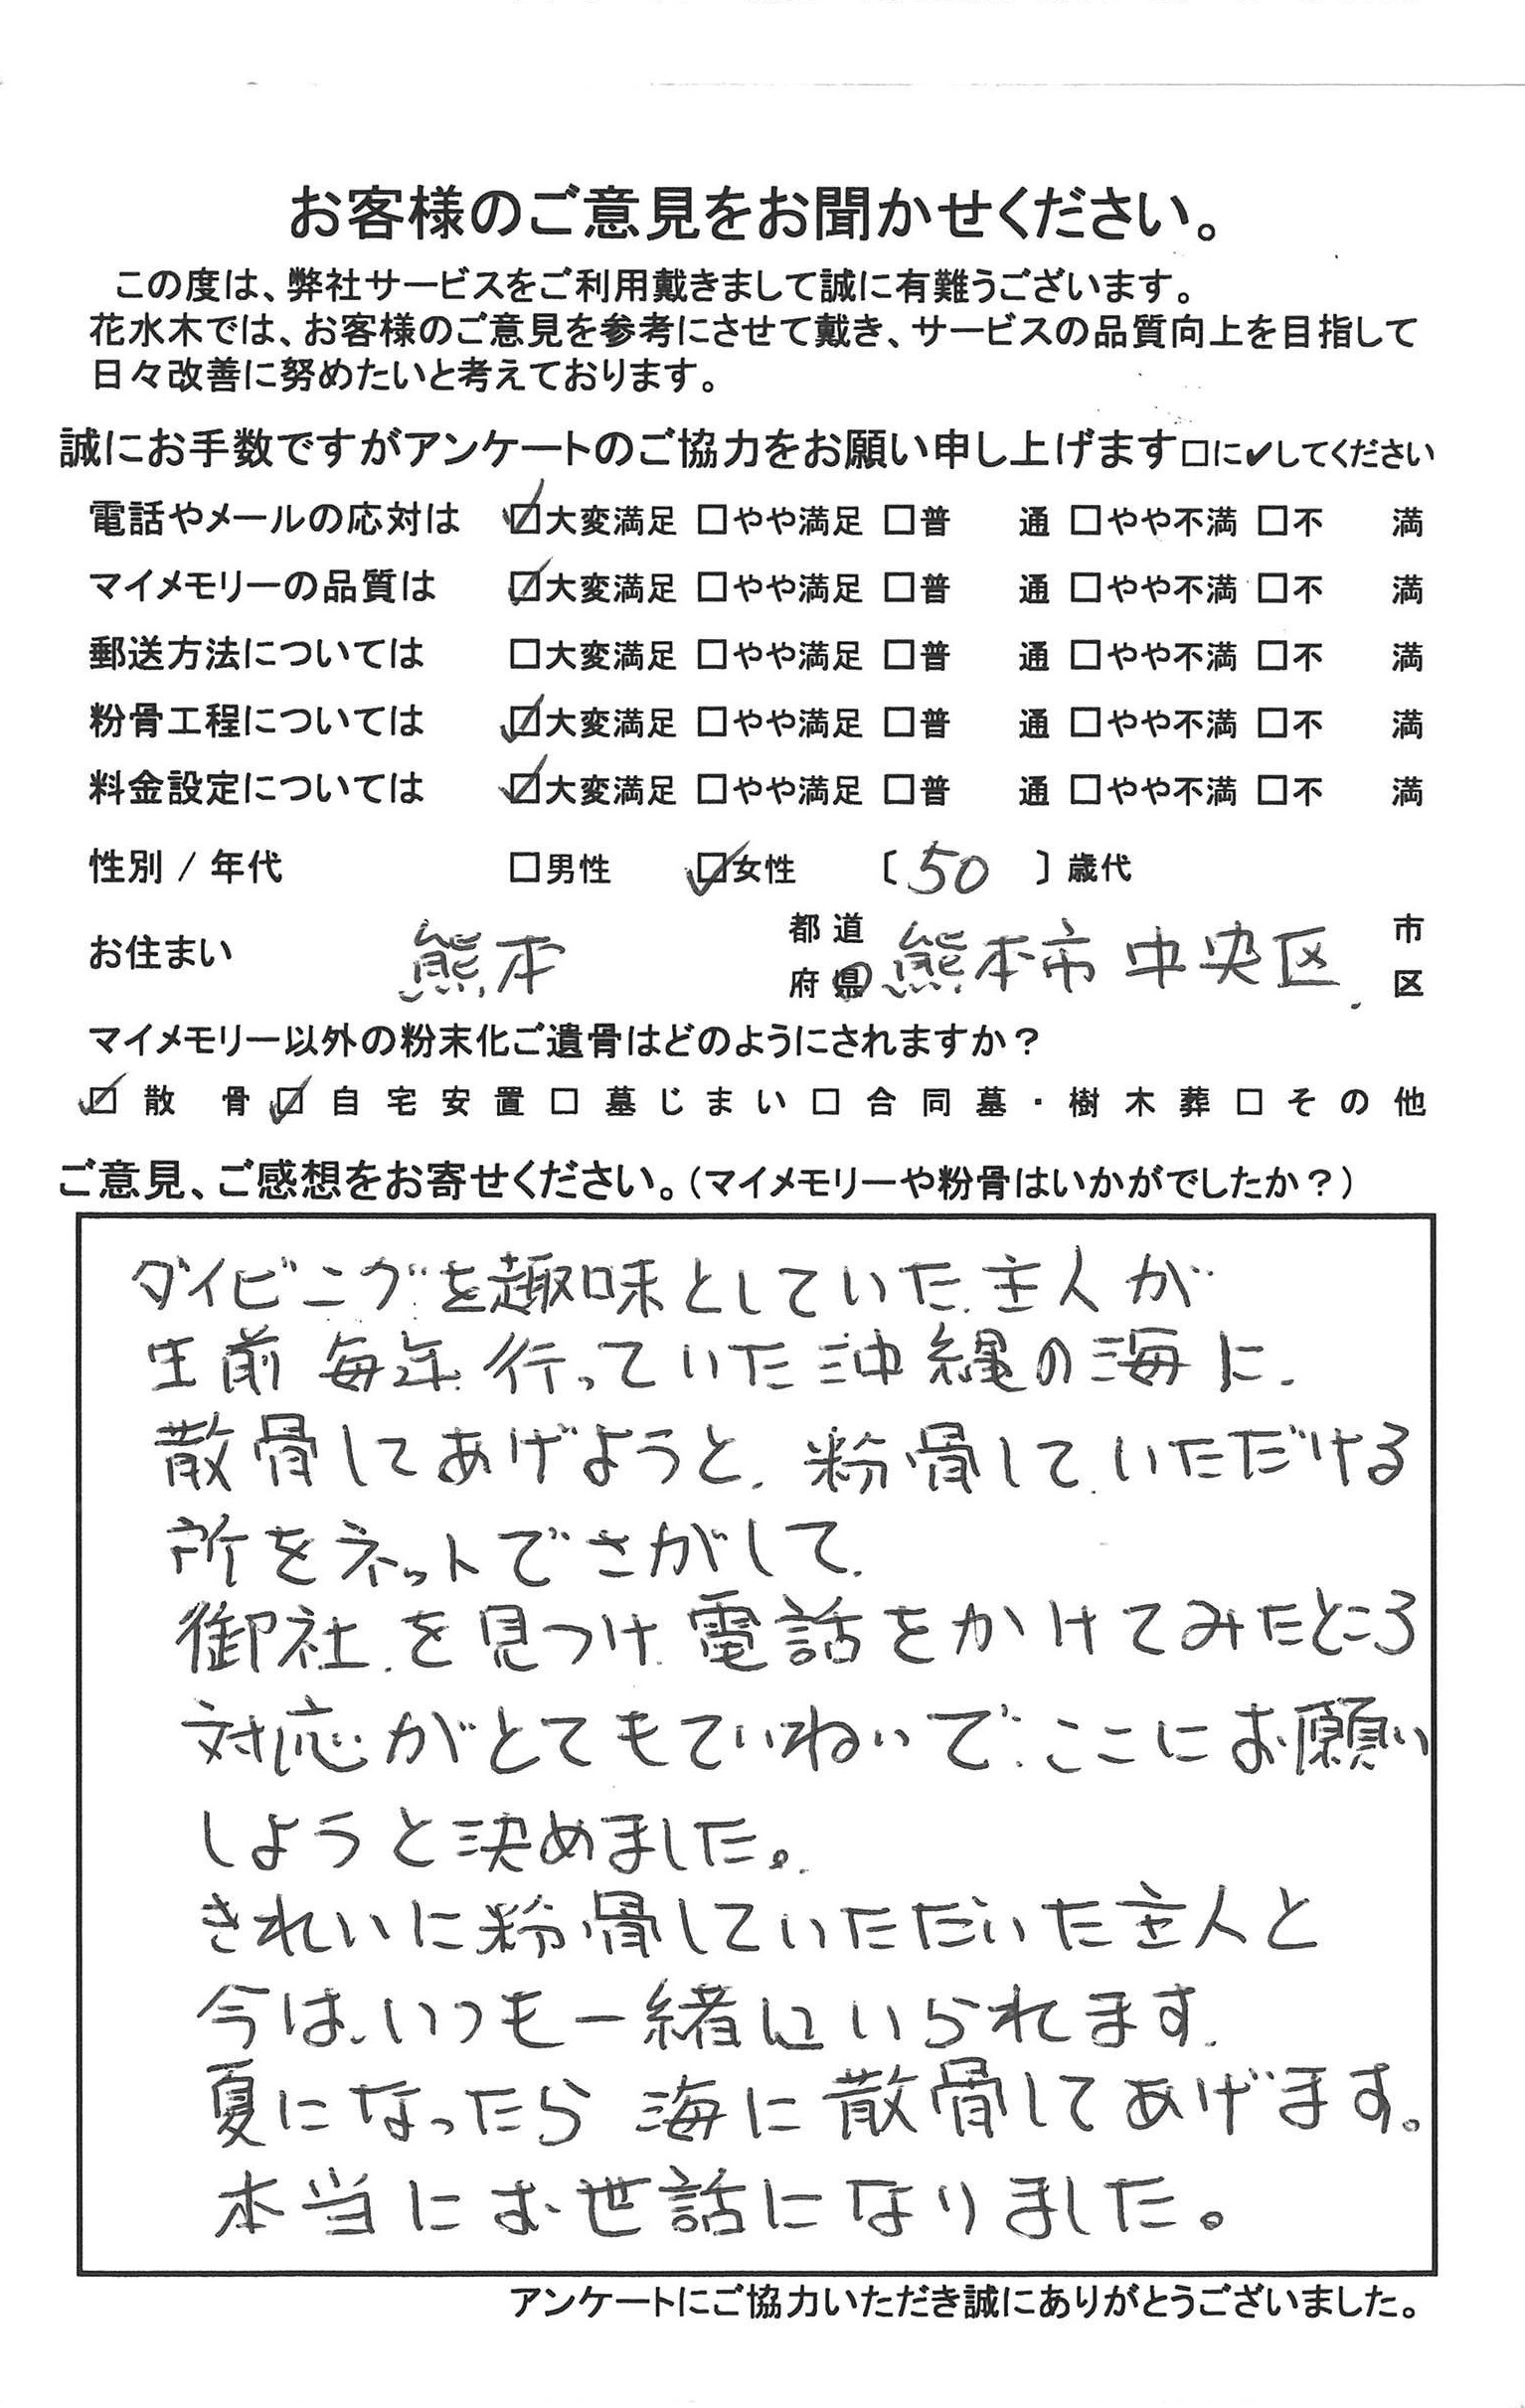 お客様のご意見をお聞かせください。
この度は、弊社サービスをご利用戴きまして誠に有難うございます。
花水木では、お客様のご意見を参考にさせて戴き、サービスの品質向上を目指して
日々改善に努めたいと考えております。
誠にお手数ですがアンケートのご協力をお願い申し上げます□に✔してください
電話やメールの応対は ☑大変満足 □やや満足 □普 通 □やや不満 □不 満
マイメモリーの品質は ☑大変満足 □やや満足 □普 通 □やや不満 □不 満
郵送方法については □大変満足 □やや満足 □普 通 □やや不満 □不 満
粉骨工程については ☑大変満足 □やや満足 □普 通 □やや不満 □不 満
料金設定については ☑大変満足 □やや満足 □普 通 □やや不満 □不 満
性別 / 年代 □男性 ☑女性 〔 50 〕歳代
お住まい 熊本 都道府県 熊本市中央区 市区
マイメモリー以外の粉末化ご遺骨はどのようにされますか？
☑散 骨 ☑自宅安置 □墓じまい □合同墓・樹木葬 □その他
ご意見、ご感想をお寄せください。（マイメモリーや粉骨はいかがでしたか？）
ダイビングを趣味としていた主人が
生前毎年行っていた沖縄の海に、
散骨してあげようと、粉骨していただける
所をネットでさがして、
御社を見つけ電話をかけてみたところ
対応がとてもていねいで、ここにお願い
しようと決めました。
きれいに粉骨していただいた主人と
今は、いつも一緒にいられます。
夏になったら海に散骨してあげます。
本当にお世話になりました。
アンケートにご協力いただき誠にありがとうございました。